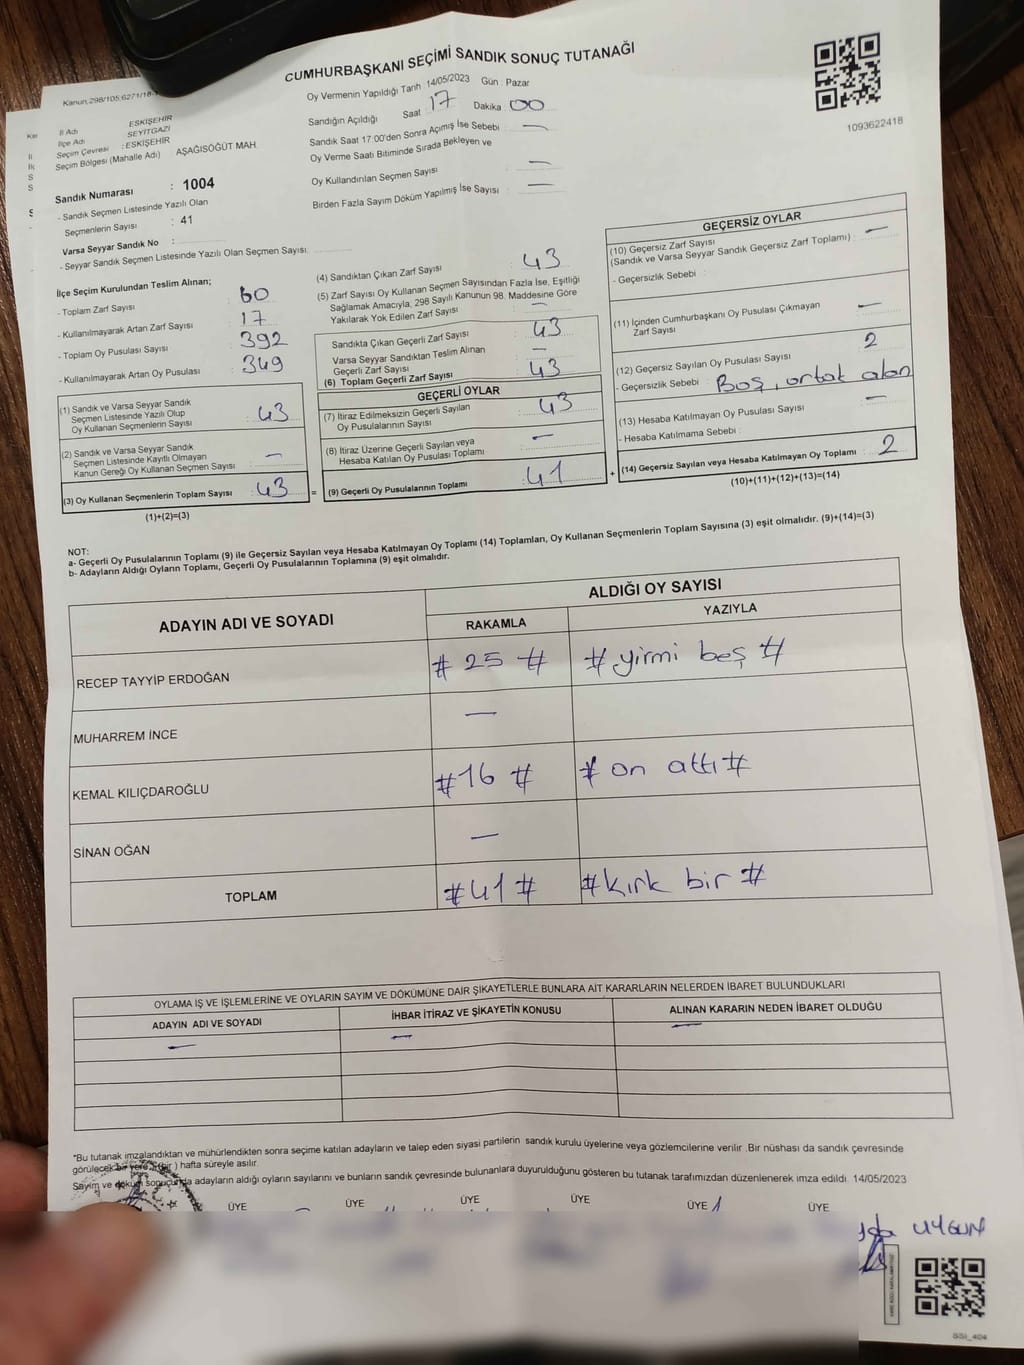 CUMHURBAŞKANI SEÇİMİ SANDIK SONUÇ TUTANAĞI
Kanun,298/105;6271/18-
İl Adı ESKİŞEHİR
İlçe Adı SEYİTGAZİ
Seçim Çevresi : ESKİŞEHİR
Seçim Bölgesi (Mahalle Adı) AŞAĞISÖĞÜT MAH.
Sandık Numarası : 1004
- Sandık Seçmen Listesinde Yazılı Olan
Seçmenlerin Sayısı : 41
Varsa Seyyar Sandık No :
- Seyyar Sandık Seçmen Listesinde Yazılı Olan Seçmen Sayısı:
Oy Vermenin Yapıldığı Tarih : 14/05/2023 Gün : Pazar
Sandığın Açıldığı Saat 17 Dakika 00
Sandık Saat 17:00'den Sonra Açılmış İse Sebebi : —
Oy Verme Saati Bitiminde Sırada Bekleyen ve
Oy Kullandırılan Seçmen Sayısı : —
Birden Fazla Sayım Döküm Yapılmış İse Sayısı : —
1093622418
İlçe Seçim Kurulundan Teslim Alınan;
- Toplam Zarf Sayısı : 60
- Kullanılmayarak Artan Zarf Sayısı : 17
- Toplam Oy Pusulası Sayısı : 392
- Kullanılmayarak Artan Oy Pusulası : 349
(1) Sandık ve Varsa Seyyar Sandık
Seçmen Listesinde Yazılı Olup
Oy Kullanan Seçmenlerin Sayısı : 43
(2) Sandık ve Varsa Seyyar Sandık
Seçmen Listesinde Kayıtlı Olmayan
Kanun Gereği Oy Kullanan Seçmen Sayısı : —
(3) Oy Kullanan Seçmenlerin Toplam Sayısı : 43
(1)+(2)=(3)
(4) Sandıktan Çıkan Zarf Sayısı : 43
(5) Zarf Sayısı Oy Kullanan Seçmen Sayısından Fazla İse, Eşitliği
Sağlamak Amacıyla, 298 Sayılı Kanunun 98. Maddesine Göre
Yakılarak Yok Edilen Zarf Sayısı : —
Sandıkta Çıkan Geçerli Zarf Sayısı : 43
Varsa Seyyar Sandıktan Teslim Alınan
Geçerli Zarf Sayısı : —
(6) Toplam Geçerli Zarf Sayısı : 43
GEÇERLİ OYLAR
(7) İtiraz Edilmeksizin Geçerli Sayılan
Oy Pusulalarının Sayısı : 43
(8) İtiraz Üzerine Geçerli Sayılan veya
Hesaba Katılan Oy Pusulası Toplamı : —
= (9) Geçerli Oy Pusulalarının Toplamı : 41 +
GEÇERSİZ OYLAR
(10) Geçersiz Zarf Sayısı
(Sandık ve Varsa Seyyar Sandık Geçersiz Zarf Toplamı) : —
- Geçersizlik Sebebi :
(11) İçinden Cumhurbaşkanı Oy Pusulası Çıkmayan
Zarf Sayısı : —
(12) Geçersiz Sayılan Oy Pusulası Sayısı : 2
- Geçersizlik Sebebi : Boş, ortak alan
(13) Hesaba Katılmayan Oy Pusulası Sayısı : —
- Hesaba Katılmama Sebebi :
(14) Geçersiz Sayılan veya Hesaba Katılmayan Oy Toplamı : 2
(10)+(11)+(12)+(13)=(14)
NOT:
a- Geçerli Oy Pusulalarının Toplamı (9) ile Geçersiz Sayılan veya Hesaba Katılmayan Oy Toplamı (14) Toplamları, Oy Kullanan Seçmenlerin Toplam Sayısına (3) eşit olmalıdır. (9)+(14)=(3)
b- Adayların Aldığı Oyların Toplamı, Geçerli Oy Pusulalarının Toplamına (9) eşit olmalıdır.
ADAYIN ADI VE SOYADI ALDIĞI OY SAYISI
RAKAMLA YAZIYLA
RECEP TAYYİP ERDOĞAN # 25 # # yirmi beş #
MUHARREM İNCE —
KEMAL KILIÇDAROĞLU #16 # # on altı #
SİNAN OĞAN —
TOPLAM #41 # #kırk bir #
OYLAMA İŞ VE İŞLEMLERİNE VE OYLARIN SAYIM VE DÖKÜMÜNE DAİR ŞİKAYETLERLE BUNLARA AİT KARARLARIN NELERDEN İBARET BULUNDUKLARI
ADAYIN ADI VE SOYADI İHBAR İTİRAZ VE ŞİKAYETİN KONUSU ALINAN KARARIN NEDEN İBARET OLDUĞU
— — —
*Bu tutanak imzalandıktan ve mühürlendikten sonra seçime katılan adayların ve talep eden siyasi partilerin sandık kurulu üyelerine veya gözlemcilerine verilir. Bir nüshası da sandık çevresinde
görülecek bir yere 1(bir) hafta süreyle asılır.
Sayım ve döküm sonucunda adayların aldığı oyların sayılarını ve bunların sandık çevresinde bulunanlara duyurulduğunu gösteren bu tutanak tarafımızdan düzenlenerek imza edildi. 14/05/2023
ÜYE ÜYE ÜYE ÜYE ÜYE ÜYE
UYGUN
SSI_404